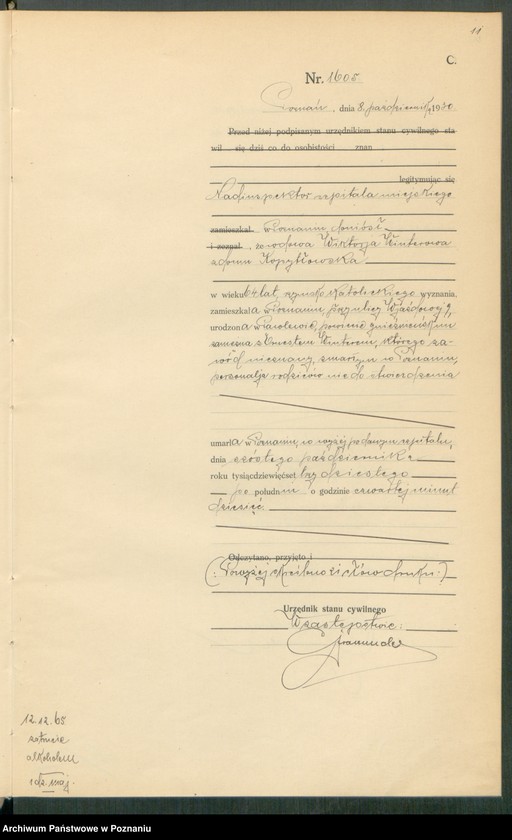 11
C.
Nr. 1605
Poznań, dnia 8. października 1930
Przed niżej podpisanym urzędnikiem stanu cywilnego sta
wił się dziś co do osobistości znan
legitymując się
Nadinspektor szpitala miejskiego
zamieszkał w Poznaniu, doniósł
i zeznał, że wdowa Wiktorja Winterowa
z domu Kopydłowska
w wieku 64 lat, rzymsko katolickiego wyznania,
zamieszkała w Poznaniu, przy ulicy Wjazdowej 9,
urodzona w powiecie gnieźnieńskim
zamężna z Winterem, którego za-
wód nieznany, zmarłym w Poznaniu,
personalja rodziców nie do stwierdzenia
umarła w Poznaniu, w wyżej podanym szpitalu,
dnia szóstego października
roku tysiącdziewięćset trzydziestego
po południu o godzinie czwartej minut
dziesięć.
Odczytano, przyjęto i
(: Powyżej skreślono słów druku :)
Urzędnik stanu cywilnego
W zastępstwie:
12.12.65
alkoholem
Archiwum Państwowe w Poznaniu